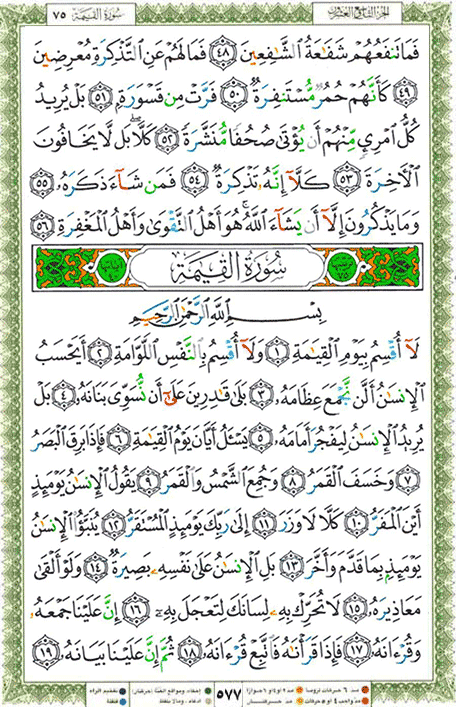 سُورَةُ القِيَامَةِ ٧٥
الجزء التاسع والعشرون
فَمَا تَنفَعُهُمْ شَفَٰعَةُ ٱلشَّٰفِعِينَ ٤٨ فَمَا لَهُمْ عَنِ ٱلتَّذْكِرَةِ مُعْرِضِينَ
٤٩ كَأَنَّهُمْ حُمُرٌ مُّسْتَنفِرَةٌ ٥٠ فَرَّتْ مِن قَسْوَرَةٍۭ ٥١ بَلْ يُرِيدُ
كُلُّ ٱمْرِئٍ مِّنْهُمْ أَن يُؤْتَىٰ صُحُفًا مُّنَشَّرَةً ٥٢ كَلَّا ۖ بَل لَّا يَخَافُونَ
ٱلْءَاخِرَةَ ٥٣ كَلَّآ إِنَّهُۥ تَذْكِرَةٌ ٥٤ فَمَن شَآءَ ذَكَرَهُۥ ٥٥
وَمَا يَذْكُرُونَ إِلَّآ أَن يَشَآءَ ٱللَّهُ ۚ هُوَ أَهْلُ ٱلتَّقْوَىٰ وَأَهْلُ ٱلْمَغْفِرَةِ ٥٦
سُورَةُ القِيَامَةِ
بِسْمِ ٱللَّهِ ٱلرَّحْمَٰنِ ٱلرَّحِيمِ
لَآ أُقْسِمُ بِيَوْمِ ٱلْقِيَٰمَةِ ١ وَلَآ أُقْسِمُ بِٱلنَّفْسِ ٱللَّوَّامَةِ ٢ أَيَحْسَبُ
ٱلْإِنسَٰنُ أَلَّن نَّجْمَعَ عِظَامَهُۥ ٣ بَلَىٰ قَٰدِرِينَ عَلَىٰٓ أَن نُّسَوِّىَ بَنَانَهُۥ ٤ بَلْ
يُرِيدُ ٱلْإِنسَٰنُ لِيَفْجُرَ أَمَامَهُۥ ٥ يَسْـَٔلُ أَيَّانَ يَوْمُ ٱلْقِيَٰمَةِ ٦ فَإِذَا بَرِقَ ٱلْبَصَرُ
٧ وَخَسَفَ ٱلْقَمَرُ ٨ وَجُمِعَ ٱلشَّمْسُ وَٱلْقَمَرُ ٩ يَقُولُ ٱلْإِنسَٰنُ يَوْمَئِذٍ
أَيْنَ ٱلْمَفَرُّ ١٠ كَلَّا لَا وَزَرَ ١١ إِلَىٰ رَبِّكَ يَوْمَئِذٍ ٱلْمُسْتَقَرُّ ١٢ يُنَبَّؤُا۟ ٱلْإِنسَٰنُ
يَوْمَئِذٍۭ بِمَا قَدَّمَ وَأَخَّرَ ١٣ بَلِ ٱلْإِنسَٰنُ عَلَىٰ نَفْسِهِۦ بَصِيرَةٌ ١٤ وَلَوْ أَلْقَىٰ
مَعَاذِيرَهُۥ ١٥ لَا تُحَرِّكْ بِهِۦ لِسَانَكَ لِتَعْجَلَ بِهِۦٓ ١٦ إِنَّ عَلَيْنَا جَمْعَهُۥ
وَقُرْءَانَهُۥ ١٧ فَإِذَا قَرَأْنَٰهُ فَٱتَّبِعْ قُرْءَانَهُۥ ١٨ ثُمَّ إِنَّ عَلَيْنَا بَيَانَهُۥ ١٩
٥٧٧